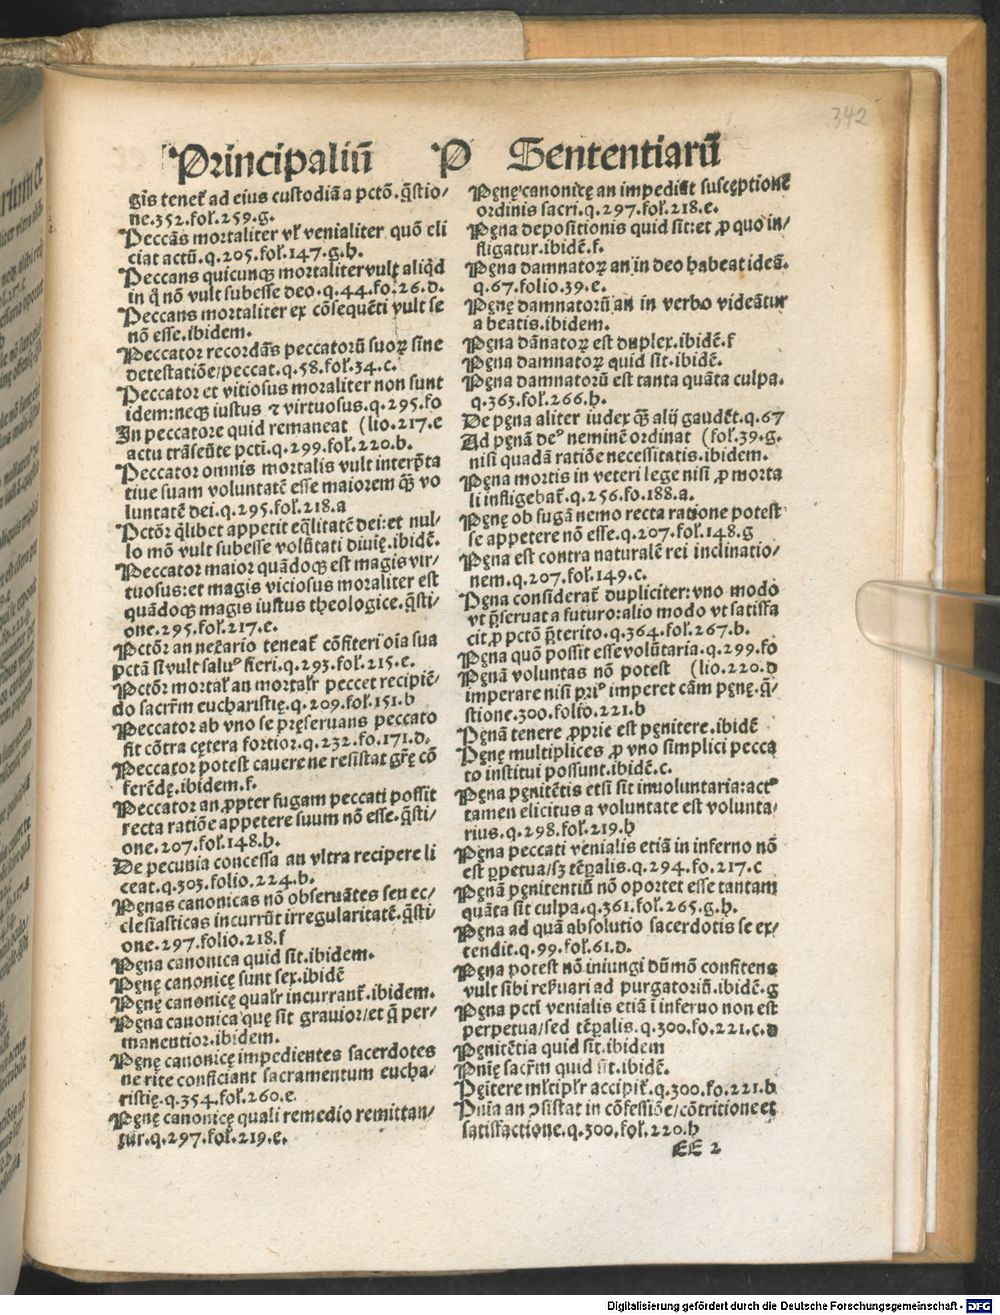 342
Principaliū P Sententiarū
gis teneť ad eius custodiā a pctō.q̄stio/
ne.352.foł.259.g.
Peccās mortaliter vł venialiter quō eli
ciat actū.q.205.foł.147.g.h.
Peccans quicunqꝫ mortaliter vult aliqͥd
in q̄ nō vult subesse deo.q.44.fo.26.d.
Peccans mortaliter ex cōsequēti vult se
nō esse.ibidem.
Peccator recordās peccatorū suoꝝ sine
detestatiōe/peccat.q.58.foł.34.c.
Peccator et vitiosus moraliter non sunt
idem:neqꝫ iustus ⁊ virtuosus.q.295.fo
In peccatore quid remaneat (lio.217.e
actu trāseūte pcti.q.299.foł.220.b.
Peccator omnis mortalis vult interp̄ta
tiue suam voluntatē esse maiorem qꝫ̄ vo
luntatē dei.q.295.foł.218.a
Pctōr qͥlibet appetit eq̄litatē dei:et nul/
lo mō vult subesse volūtati diuię.ibidē.
Peccator maior quādoqꝫ est magis vir/
tuosus:et magis viciosus moraliter est
quādoqꝫ magis iustus theologice.q̄sti/
one.295.foł.217.e.
Pctōr an necārio teneať cōfiteri oīa sua
pctā si vult saluꝰ fieri.q.293.foł.215.e.
Pctōr mortał an mortałr peccet recipiē/
do sacrm̄ eucharistię.q.209.foł.151.b
Peccator ab vno se pręseruans peccato
fit cōtra cętera fortior.q.232.fo.171.d.
Peccator potest cauere ne resistat grę̄ cō
ferēdę.ibidem.f.
Peccator an ꝓpter fugam peccati possit
recta ratiōe appetere suum nō esse.q̄sti/
one.207.foł.148.h.
De pecunia concessa an vltra recipere li
ceat.q.303.folio.224.b.
Pęnas canonicas nō obseruātes seu ec/
clesiasticas incurrūt irregularitatē.q̄sti/
one.297.folio.218.f
Pęna canonica quid sit.ibidem.
Pęnę canonicę sunt sex.ibidē
Pęnę canonicę quałr incurranť.ibidem.
Pęna canonica quę sit grauior/et q̄ per/
manentior.ibidem.
Pęnę canonicę impedientes sacerdotes
ne rite conficiant sacramentum eucha/
ristię.q.354.foł.260.e.
Pęnę canonicę quali remedio remittan/
tur.q.297.foł.219.e.
Pęnę canonicę an impediāt susceptionē
ordinis sacri.q.297.foł.218.e.
Pęna depositionis quid sit:et ꝓ quo in/
fligatur.ibidē.f.
Pęna damnatoꝝ an in deo habeat ideā.
q.67.folio.39.e.
Pęnę damnatorū an in verbo videātur
a beatis.ibidem.
Pęna dānatoꝝ est duplex.ibidē.f
Pęna damnatoꝝ quid sit.ibidē.
Pęna damnatorū est tanta quāta culpa.
q.363.foł.266.h.
De pęna aliter iudex qꝫ̄ alij gaudēt.q.67
Ad pęnā deꝰ neminē ordinat (foł.39.g.
nisi quadā ratiōe necessitatis.ibidem.
Pęna mortis in veteri lege nisi ꝓ morta
li infligebať.q.256.fo.188.a.
Pęnę ob fugā nemo recta ratione potest
se appetere nō esse.q.207.foł.148.g
Pęna est contra naturalē rei inclinatio/
nem.q.207.foł.149.c.
Pęna consideraťˉ dupliciter:vno modo
vt p̄seruat a futuro:alio modo vt satisfa
cit ꝓ pctō p̄terito.q.364.foł.267.b.
Pęna quō possit esse volūtaria.q.299.fo
Pęnā voluntas nō potest (lio.220.d
imperare nisi priꝰ imperet cām pęnę.q̄/
stione.300.folio.221.b
Pęnā tenere ꝓprie est pęnitere.ibidē
Pęnę multiplices ꝓ vno simplici pecca
to institui possunt.ibidē.c.
Pęna pęnitētis etsi sit inuoluntaria:actꝰ
tamen elicitus a voluntate est volunta/
rius.q.298.foł.219.h
Pęna peccati venialis etiā in inferno nō
est ꝑpetua/sꝫ tēꝑalis.q.294.fo.217.c
Pęnā pęnitentiū nō oportet esse tantam
quāta sit culpa.q.361.foł.265.g.h.
Pęna ad quā absolutio sacerdotis se ex/
tendit.q.99.foł.61.d.
Pęna potest nō iniungi dūmō confitens
vult sibi reẜuari ad purgatoriū.ibidē.g
Pęna pcti venialis etiā ī inferno non est
perpetua/sed tēꝑalis.q.300.fo.221.c.d
Pęnitētia quid sit.ibidem
Pnię sacrm̄ quid sit.ibidē.
Pęitere młtipłr accipiť.q.300.fo.221.b
Pnīa an ꝯsistat in cōfessiōe/cōtritione et
satisfactione.q.300.foł.220.h
EE 2
Digitalisierung gefördert durch die Deutsche Forschungsgemeinschaft - DFG